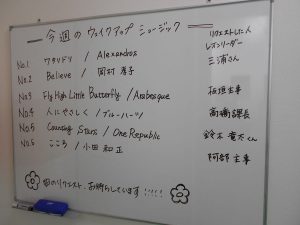 今週のウェイクアップミュージック
リクエストした人
No.1 ワタリドリ / Alexandros
No.2 Believe / 岡村 孝子 三浦さん
No.3 Fly High Little Butterfly / Arabesque 板垣主事
No.4 人にやさしく / ブルーハーツ 高橋課長
No.5 Counting Stars / One Republic 鈴木 くん
No.6 こころ / 小田 和正 阿部主事
のリクエスト、お待ちしています!!!!